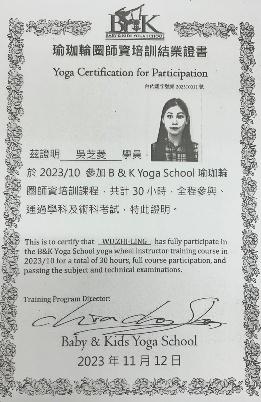 B&K
BABY & KIDS YOGA SCHOOL
瑜珈輪圈師資培訓結業證書
Yoga Certification for Participation
茲證明 吳芝菱 學員
於 2023/10 參加 B & K Yoga School 瑜珈輪
圈師資培訓課程,共計 30 小時,全程參與、
通過學科及術科考試,特此證明。
This is to certify that WU,ZHI-LING , has fully participate in
the B&K Yoga School yoga wheel instructor training course in
2023/10 for a total of 30 hours, full course participation, and
passing the subject and technical examinations.
Training Program Director:
Baby & Kids Yoga School
2023 年 11 月 12 日